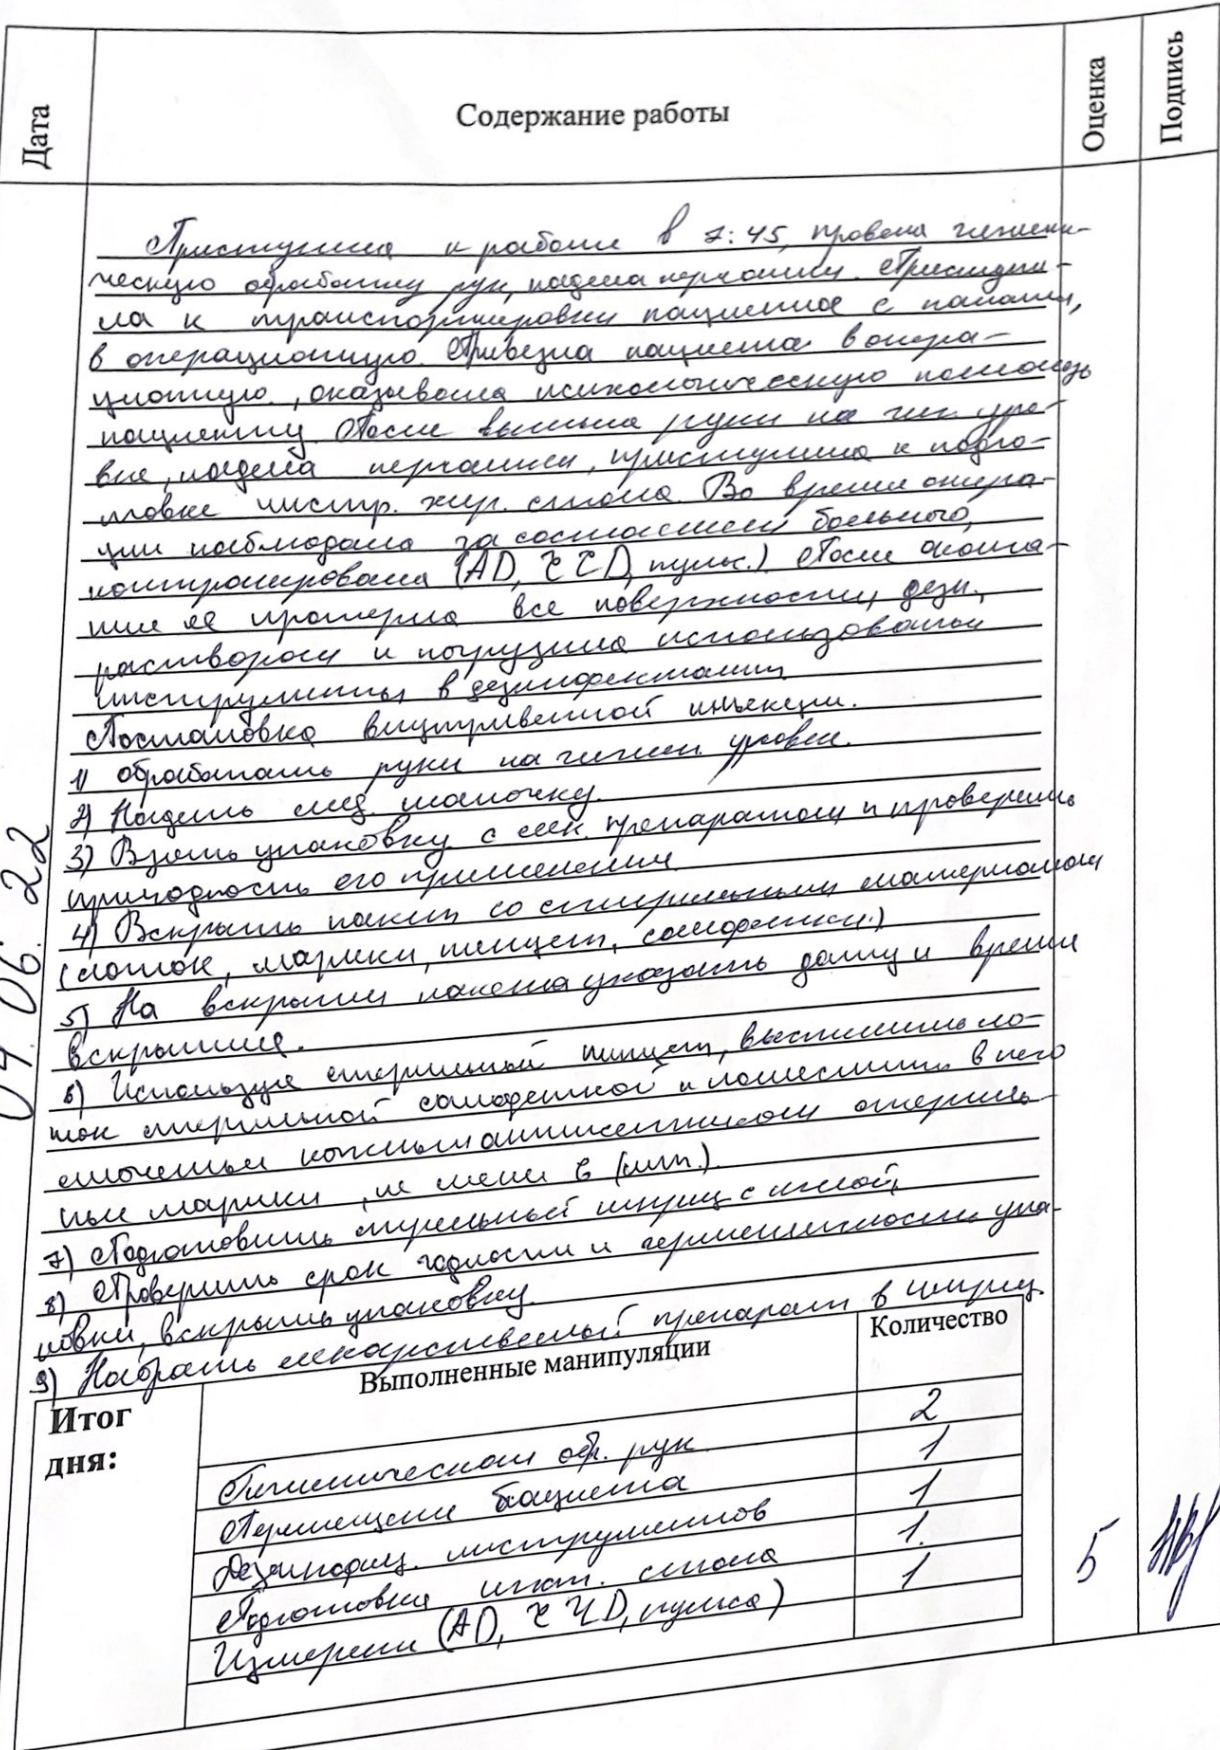 Дата
Содержание работы
Оценка
Подпись
04.06.22
Приступила к работе в 7:45, провела гигиени-
ческую обработку рук, надела перчатки. Приступи-
ла к транспортировки пациентов с палаты,
в операционную. Привезла пациента в опера-
ционную, оказывала психологическую помощь
пациенту. После вымыла руки на гиг. уро-
вне, надела перчатки, приступила к подго-
товке инстр. хир. стола. Во время опера-
ции наблюдала за состоянием больного,
контролировала (АD, ЧСD, пульс.) После оконча-
ние её протерла все поверхности дези.
раствором и погрузила использованы
инструменты в дезинфектант
Постановка внутривенной инъекции.
1) обработать руки на гигиен. уровне.
2) Надеть мед. шапочку.
3) Взять упаковку с лек. препаратом и проверить
пригодность его применения
4) Вскрыть пакет со стерильными материалом
(лоток, марлки, пинцет, салфетки.)
5) На вскрытии пакета указать дату и время
вскрытие.
6) Используя стерильный пинцет, выстилить ло-
ток стерильной салфеткой и поместить в него
смоченные кожным антисептиком стериль-
ные марлки, не мене 6 (шт.).
7) Подготовить стрельный шприц с иглой,
8) Проверить срок годности и герметичность упа-
ковки, вскрыть упаковку.
9) Набрать лекарственный препарат в шприц.
Итог дня:
Выполненные манипуляции
Количество
2
Гигиеническая обр. рук 1
Перемещение пациента 1
Дезинфекц. инструментов 1.
Подготовка инст. стола 1
Измерени (АD, ЧЧD, пульса)
5